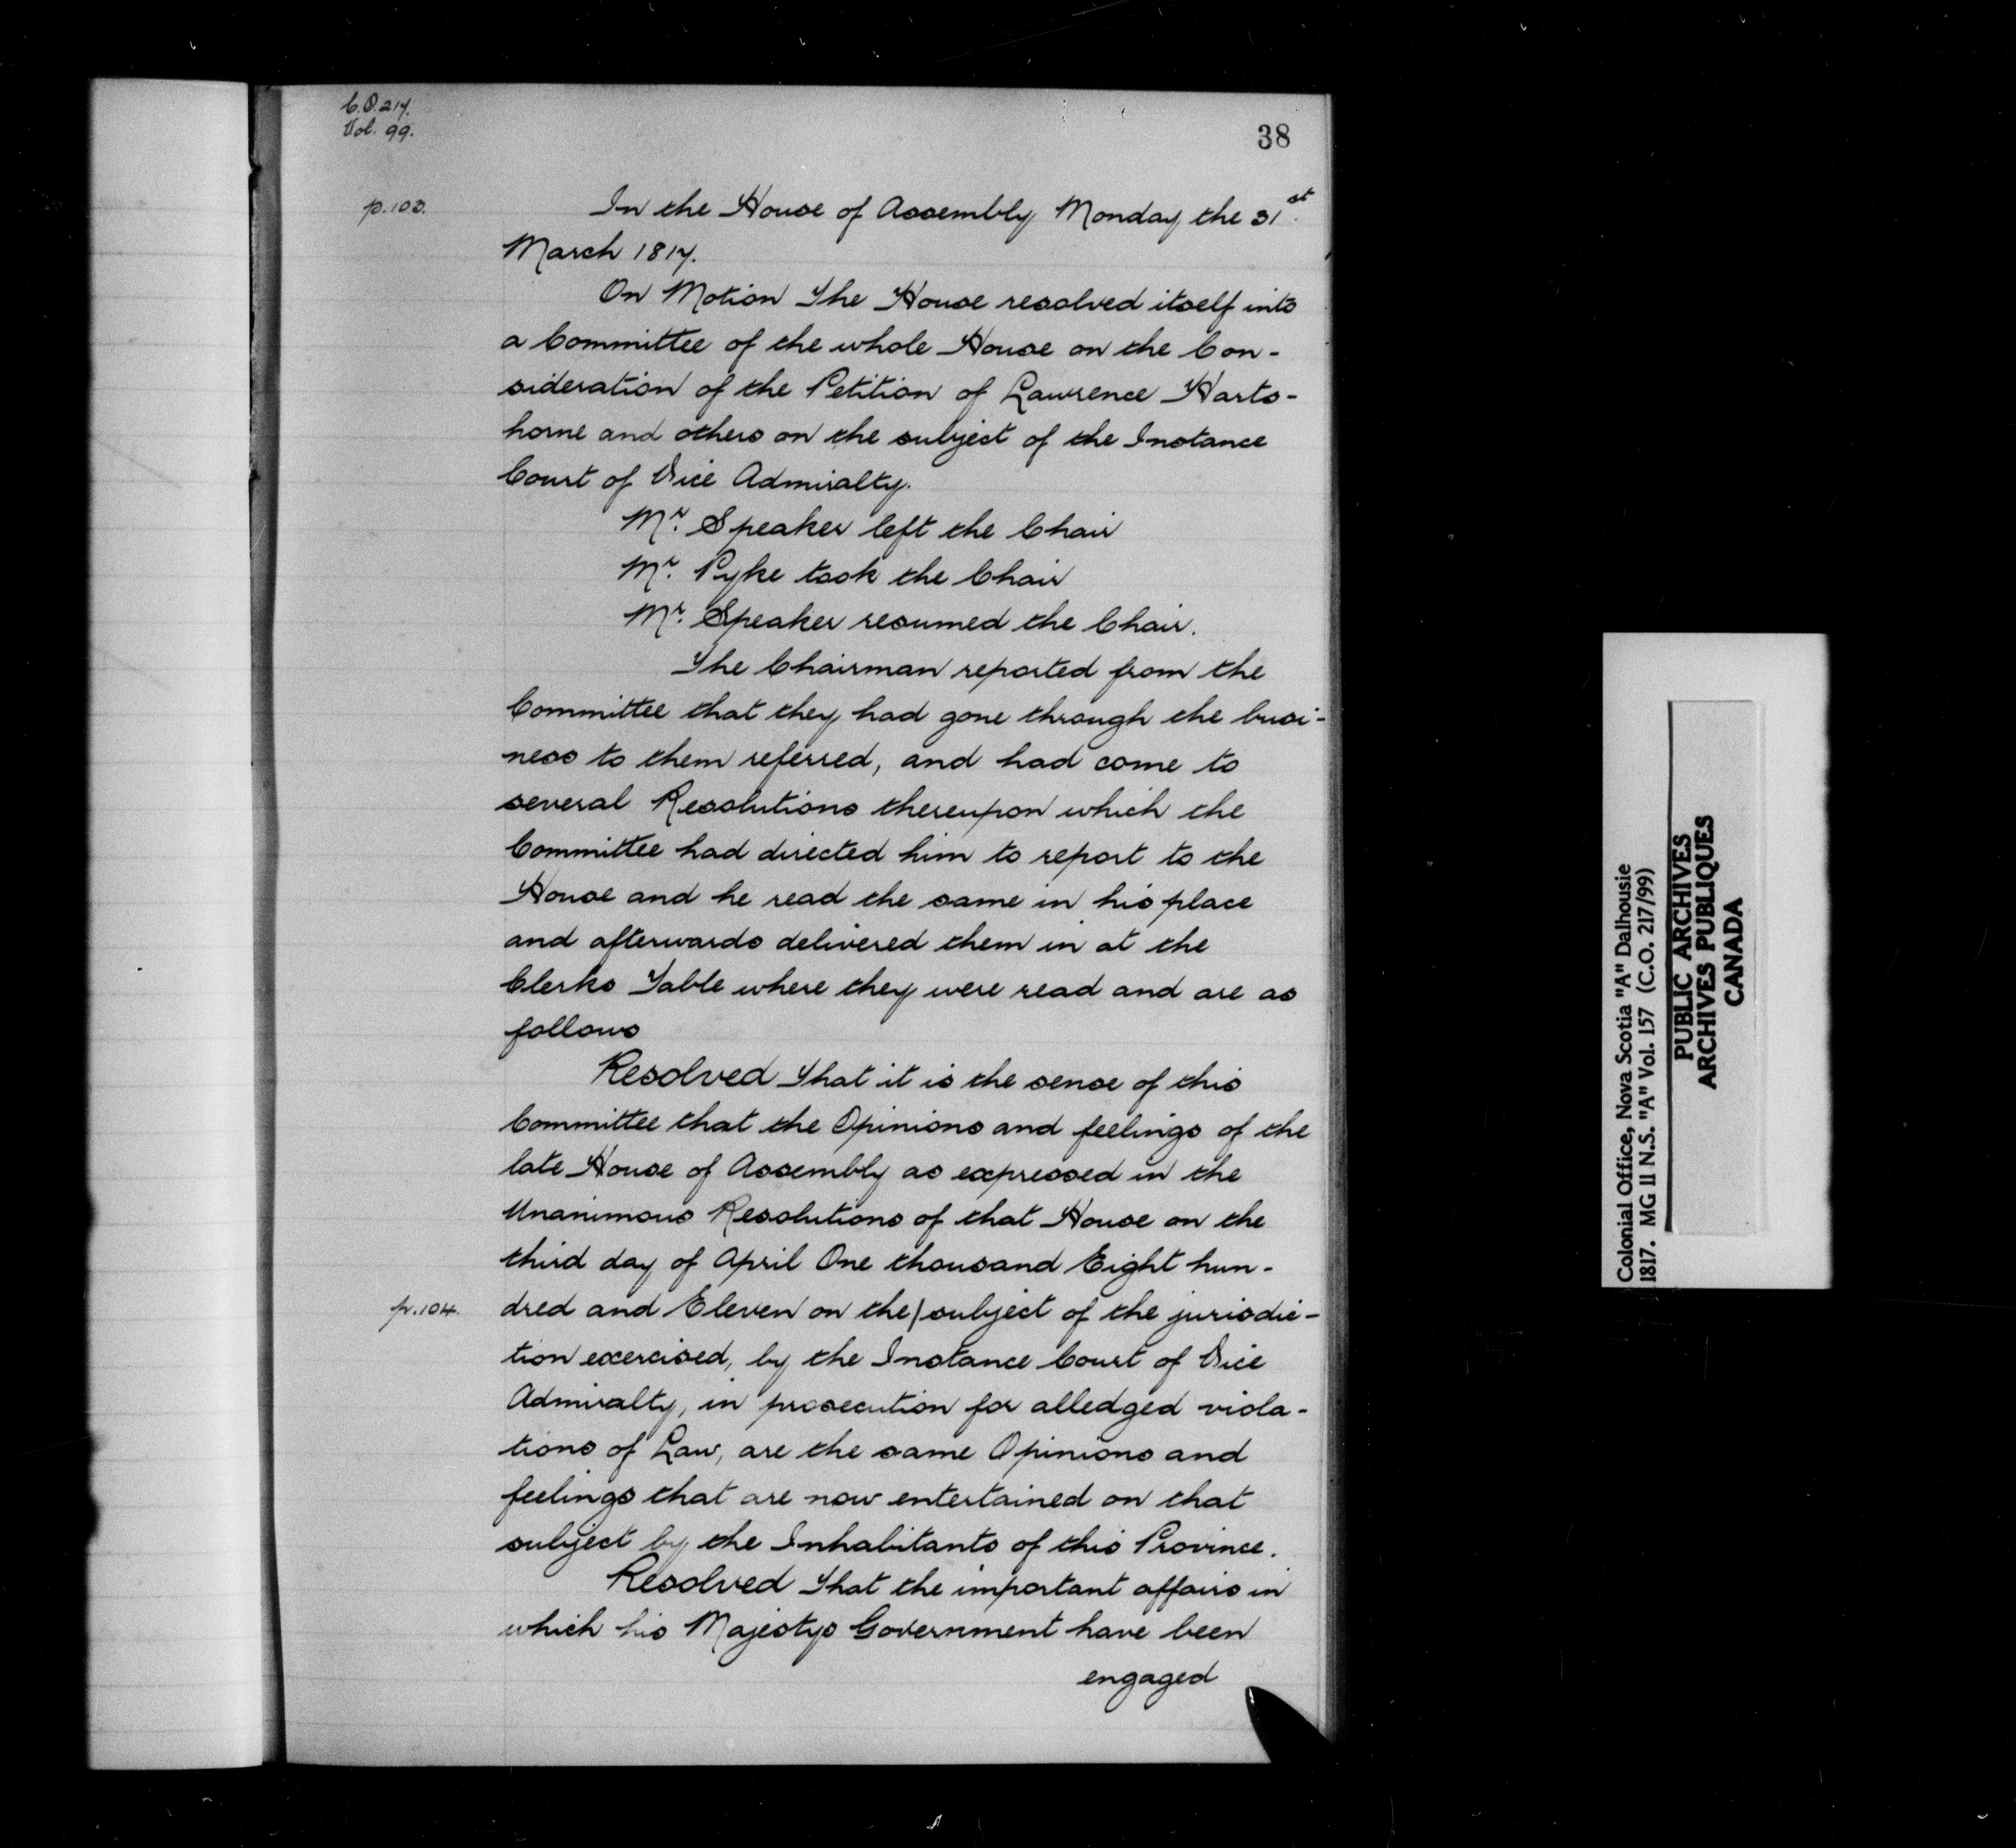 C.O. 217.
Vol. 99.
38
p. 103.
In the House of Assembly Monday the 31st.
March 1817.
On Motion The House resolved itself into
a Committee of the whole House on the Con-
sideration of the Petition of Lawrence Harts-
horne and others on the subject of the Instance
Court of Vice Admiralty.
Mr. Speaker left the Chair
Mr. Pyke took the Chair
Mr. Speaker resumed the Chair.
The Chairman reported from the
Committee that they had gone through the busi-
ness to them referred, and had come to
several Resolutions thereupon which the
Committee had directed him to report to the
House and he read the same in his place
and afterwards delivered them in at the
Clerks Table where they were read and are as
follows
Resolved That it is the sense of this
Committee that the Opinions and feelings of the
late House of Assembly as expressed in the
Unanimous Resolutions of that House on the
third day of April One thousand Eight hun-
p. 104.
dred and Eleven on the/subject of the jurisdic-
tion exercised, by the Instance Court of Vice
Admiralty, in prosecution for alledged viola-
tions of Law, are the same Opinions and
feelings that are now entertained on that
subject by the Inhabitants of this Province.
Resolved That the important affairs in
which his Majestys Government have been
engaged
Colonial Office, Nova Scotia "A" Dalhousie
1817. MG 11 N.S. "A" Vol. 157 (C.O. 217/99)
PUBLIC ARCHIVES
ARCHIVES PUBLIQUES
CANADA